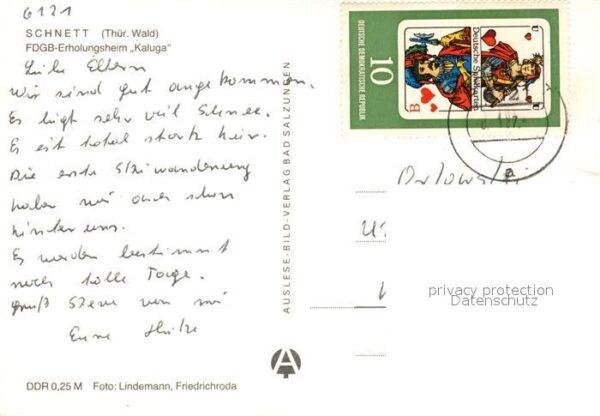 6121
SCHNETT (Thür. Wald)
FDGB-Erholungsheim „Kaluga"
Liebe Eltern
Wir sind gut angekommen.
Es liegt sehr viel Schnee.
Es ist total stark hier.
Die erste Skiwanderung
haben wir auch schon
hinter uns.
Es werden bestimmt
noch tolle Tage.
Gruß von
Eure
DDR 0,25 M Foto: Lindemann, Friedrichroda
AUSLESE-BILD-VERLAG BAD SALZUNGEN
A
DEUTSCHE DEMOKRATISCHE REPUBLIK
10
Deutsche Spielkarten
B
U
U
a
privacy protection
Datenschutz